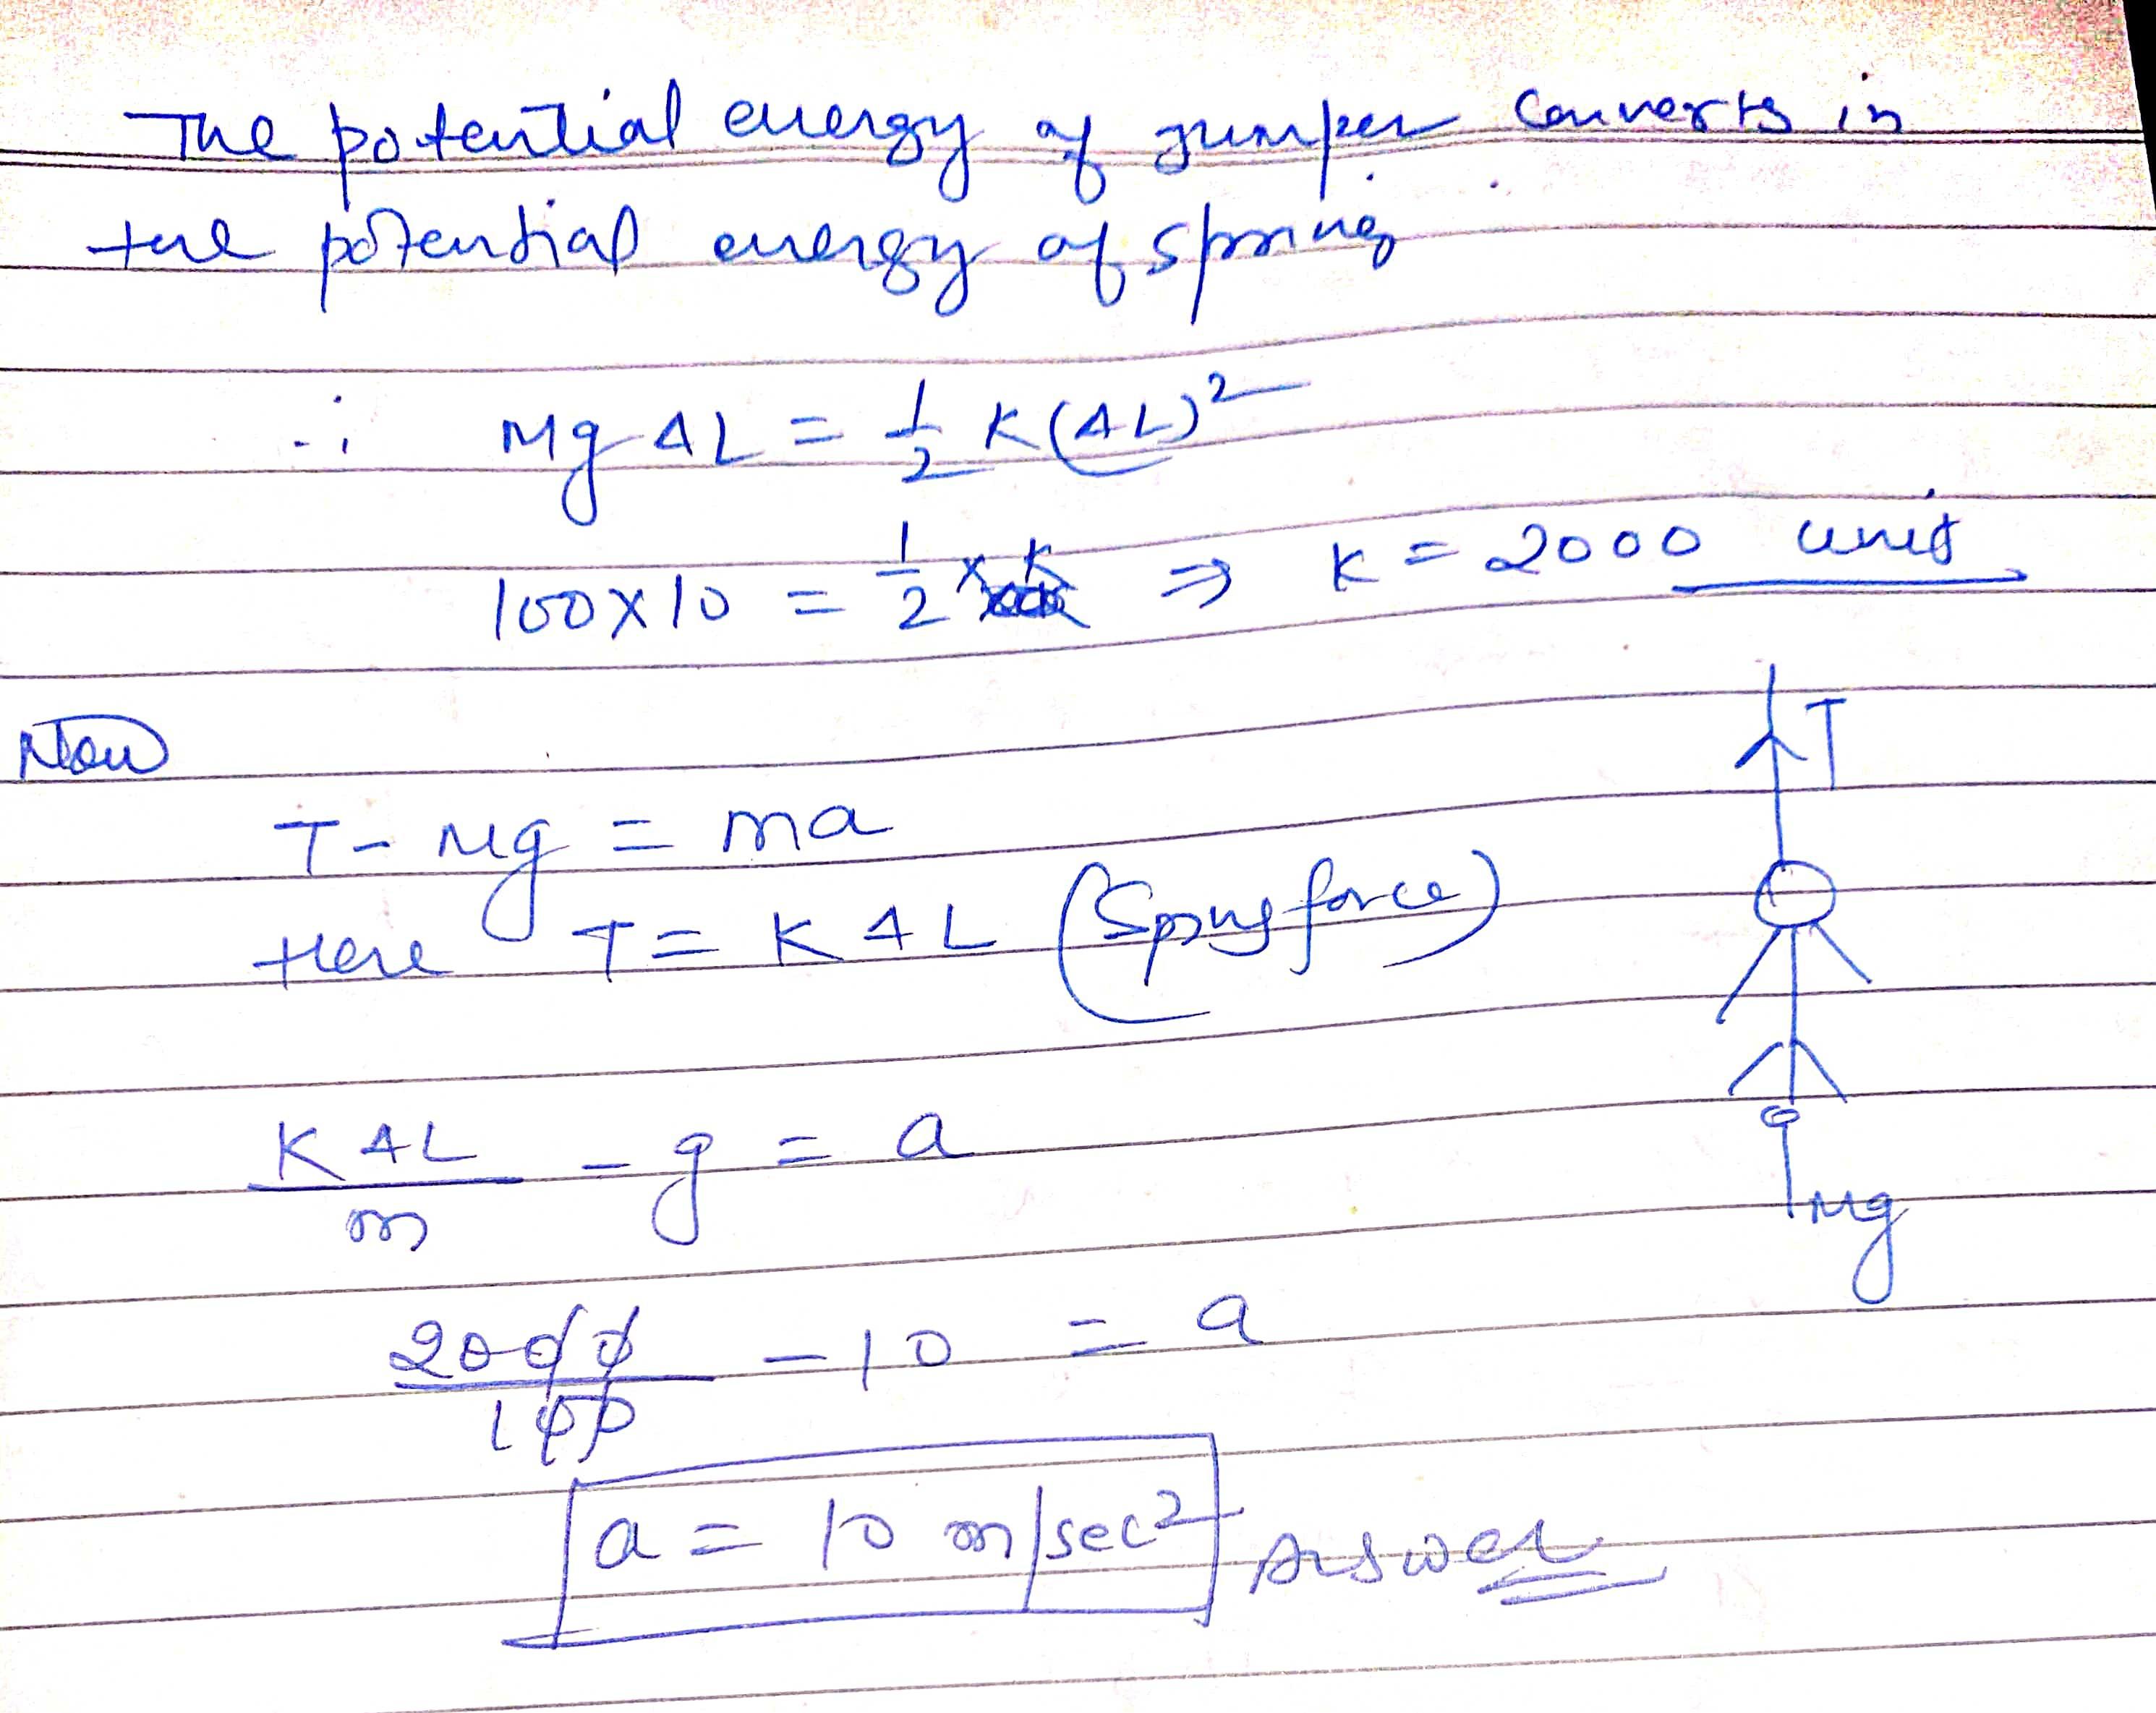 The potential energy of jumper converts in
the potential energy of spring
∴ Mg ΔL = 1/2 K(ΔL)²
100×10 = 1/2 × K ⇒ K = 2000 unit
Now
T
T - Mg = ma
Here T = K ΔL (Spring force)
K ΔL / m - g = a
Mg
2000 / 100 - 10 = a
a = 10 m/sec² Answer